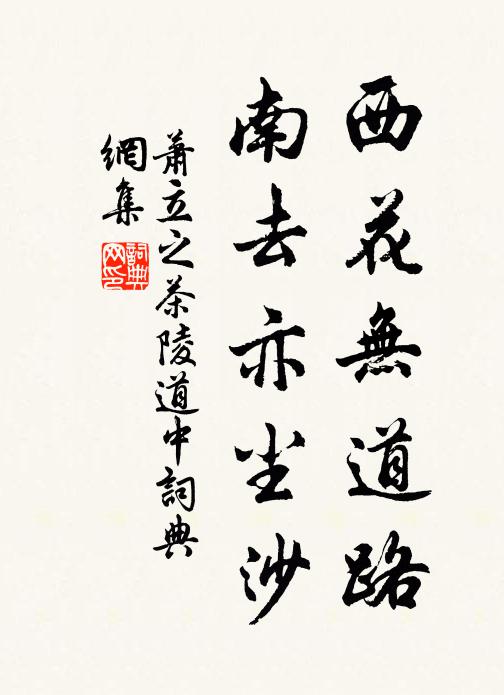 西花無道路
南去亦尘沙
蕭立之茶陵道中詞典
網集
詞典
网印